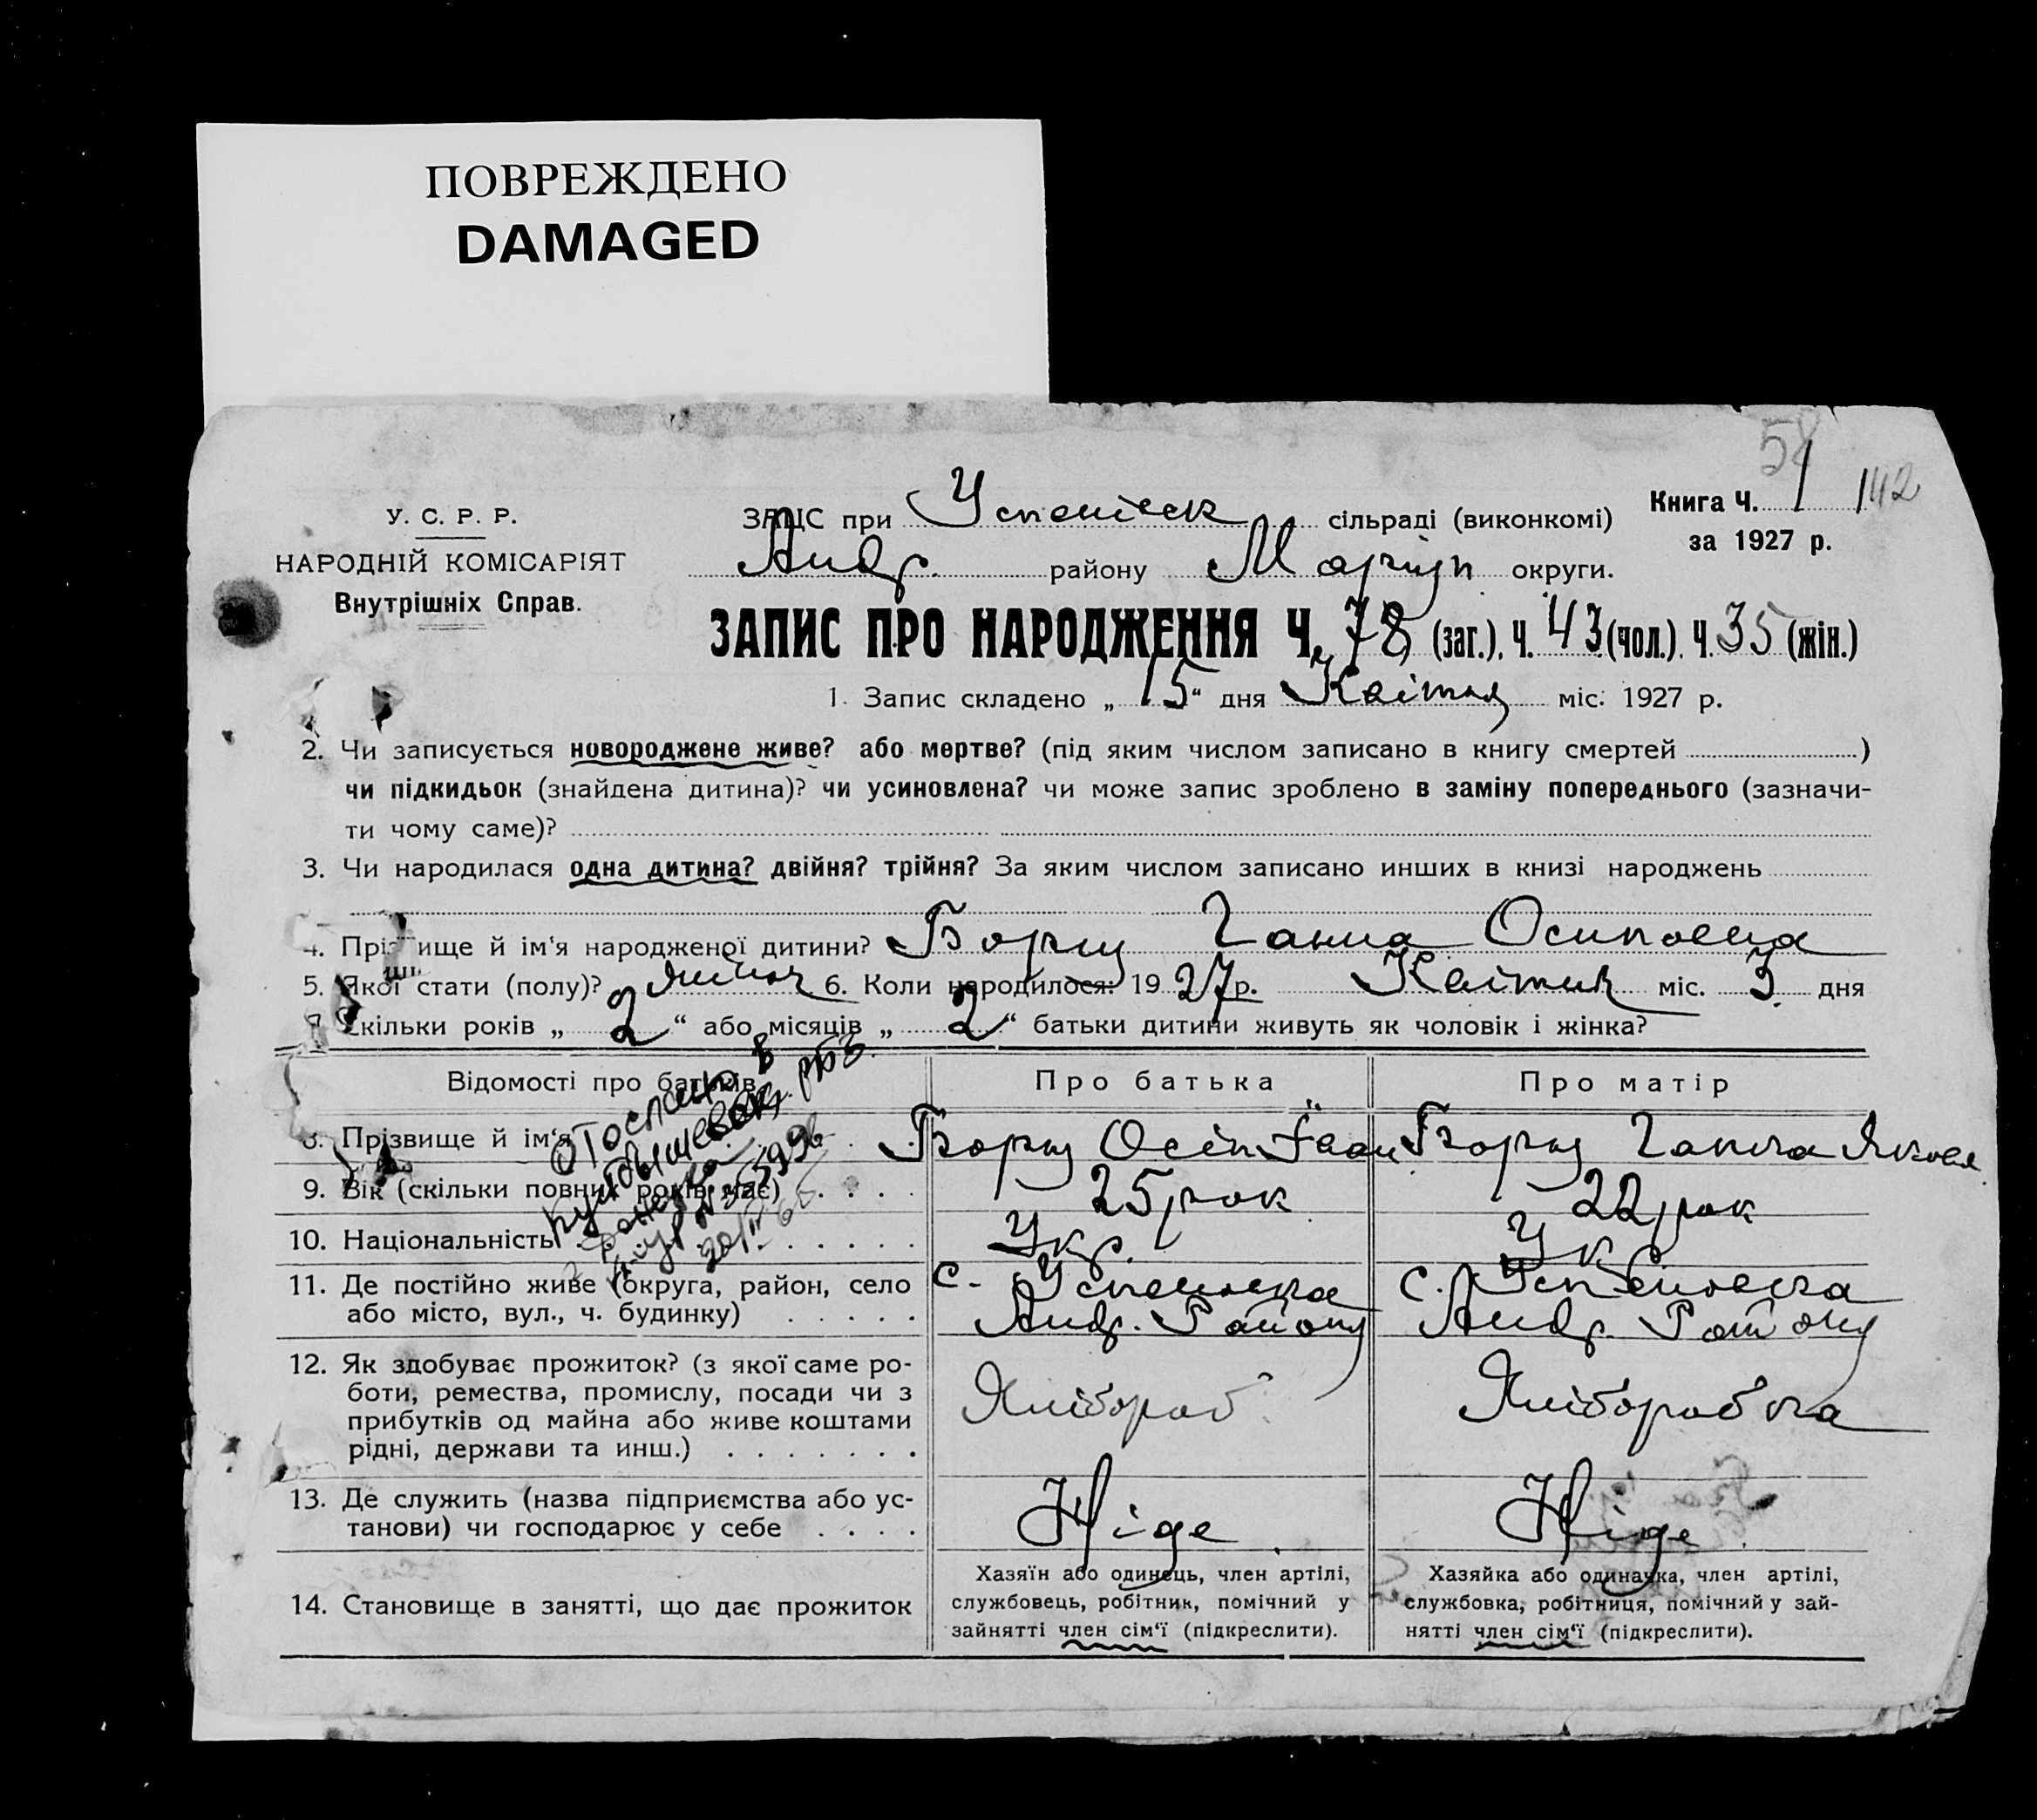 ПОВРЕЖДЕНО
DAMAGED
58
У. С. Р. Р.
НАРОДНІЙ КОМІСАРІЯТ
Внутрішніх Справ.
ЗАПИС при Успенівск сільраді (виконкомі)
Андр. району Маріуп округи.
Книга Ч. 1 142
за 1927 р.
ЗАПИС ПРО НАРОДЖЕННЯ Ч. 78 (заг.), Ч. 43 (чол.). Ч. 35 (жін.)
1. Запис складено „ 15 “ дня Квітня міс. 1927 р.
2. Чи записується новороджене живе? або мертве? (під яким числом записано в книгу смертей )
чи підкидьок (знайдена дитина)? чи усиновлена? чи може запис зроблено в заміну попереднього (зазначи-
ти чому саме)?
3. Чи народилася одна дитина? двійня? трійня? За яким числом записано инших в книзі народжень
4. Прізвище й ім‘я народженої дитини? Борщ Ганна Осиповна
5. Якої стати (полу)? жіноч 6. Коли народилося: 1927 р. Квітня міс. 3 дня
7. Скільки років „ 2 “ або місяців „ 2 “ батьки дитини живуть як чоловік і жінка?
Відомості про батьків
Про батька
Про матір
8. Прізвище й ім‘я
Борщ Осип Іван
Борщ Ганна Яковл
9. Вік (скільки повних років має)
25 рок
22 рок
10. Національність
Укр.
Ук
11. Де постійно живе (округа, район, село
або місто, вул., ч. будинку)
с. Успеновка
Андр. Району
с. Успеновка
Андр. Району
12. Як здобуває прожиток? (з якої саме ро-
боти, ремества, промислу, посади чи з
прибутків од майна або живе коштами
рідні, держави та инш.)
Хлібороб
Хліборобка
13. Де служить (назва підприємства або ус-
танови) чи господарює у себе
Ніде
Ніде
14. Становище в занятті, що дає прожиток
Хазяїн або одинець, член артілі,
службовець, робітник, помічний у
зайнятті член сім‘ї (підкреслити).
Хазяйка або одиначка, член артілі,
службовка, робітниця, помічний у зай-
нятті член сім‘ї (підкреслити).
Отослано в
Куйбышевск.
№ 355996